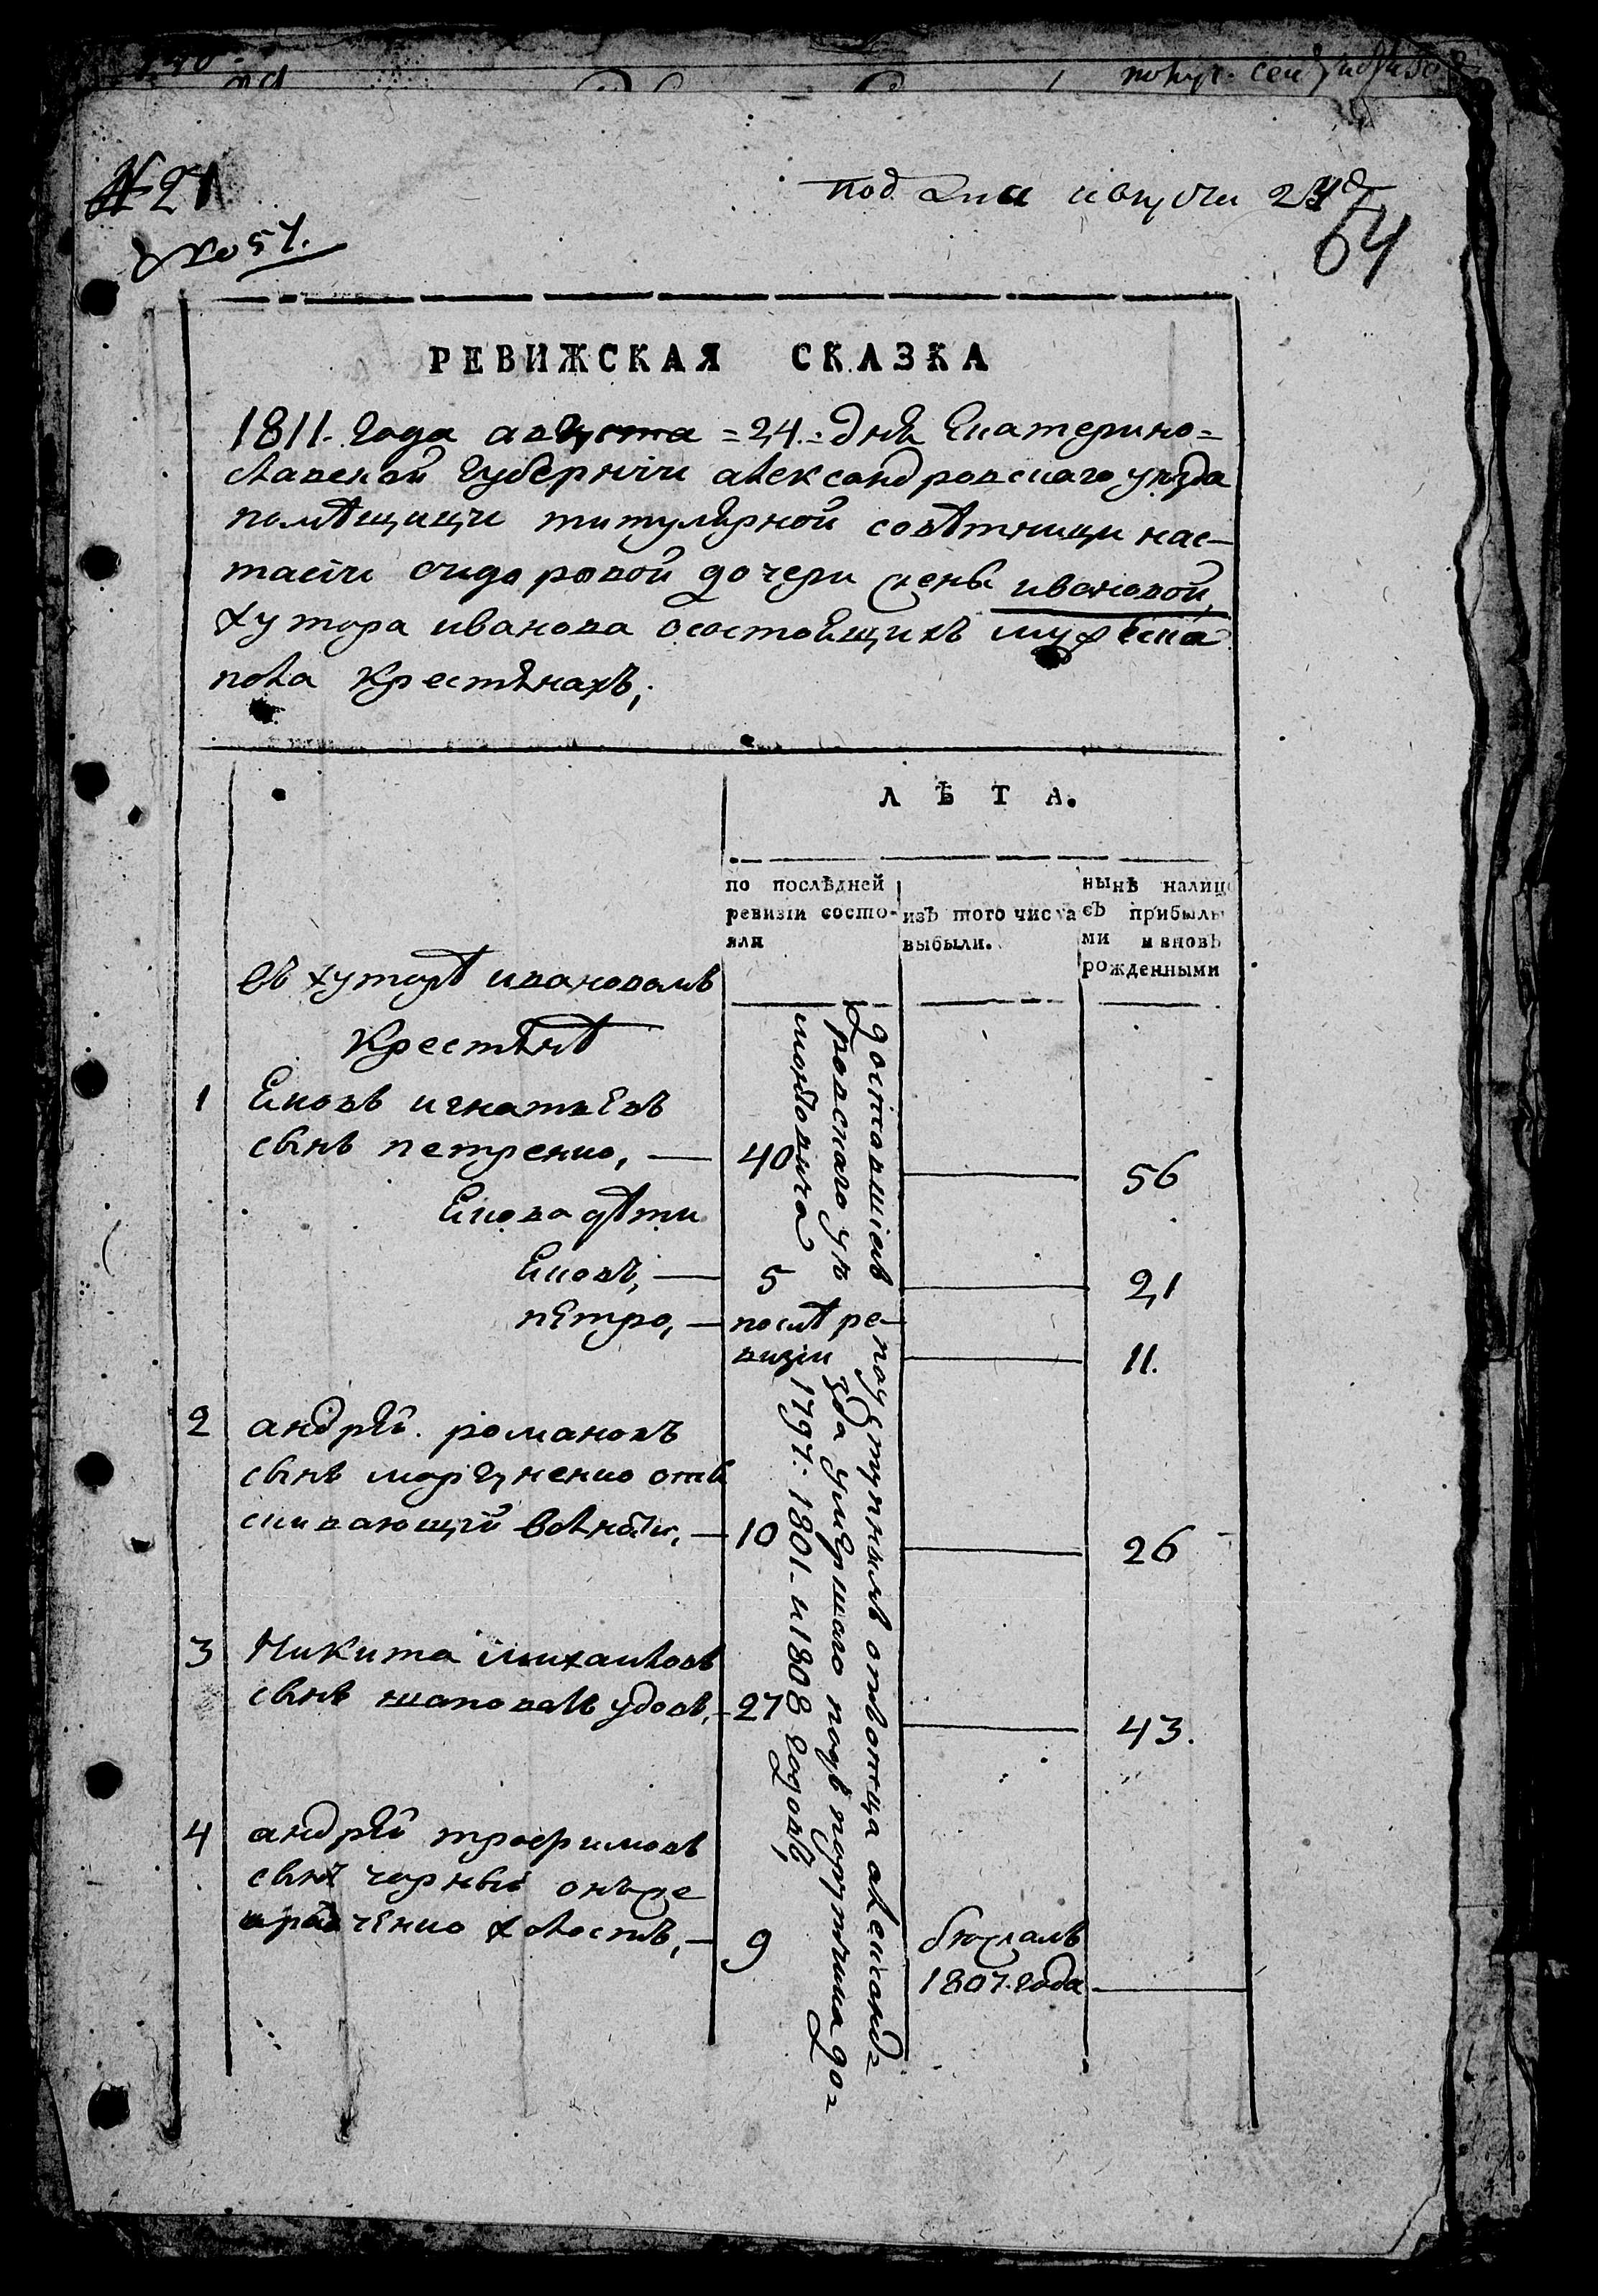 № 21
№ 57.
под дня августа 24го
64
РЕВИЖСКАЯ СКАЗКА
1811. года августа =24.= дня Екатерино=
славской губерніи александровскаго уезда
помѣщици титулярной совѣтници нас-
тасіи сидоровой дочери ивановой
хутора иванова осостоящихъ мужеска
пола крестянахъ;
ЛѢТА.
по послѣдней ревизіи состояли
изъ того числа выбыли.
нынѣ налицо съ прибылыми и вновь рожденными
въ хуторѣ ивановомъ
Крестянѣ
1 Яковъ игнатьевъ
сынъ петренко, — 40 — 56
Якова дѣти
Яковъ, — 5 — 21
пЕтро, — послѣ ре-
визіи — 11.
2 андрѣй романовъ
сынъ моргуненко оты
скивающій волности, — 10 — 26
3 Никита михаиловъ
сынъ шаповалъ удовъ, — 27 — 43.
4 андрѣй трофимовъ
сынъ чорный онъже
холостъ, — 9 бежалъ
1807. года —
доставшіемъ по уступкамъ отъ отца александ=
ровскаго уезда умершаго подъ порутчика до=
1797: 1801- и 1808 годовъ,